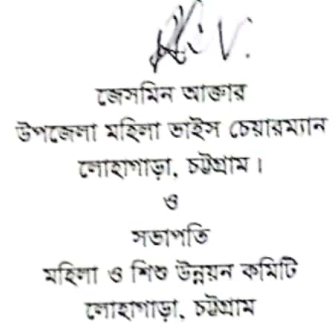 জেসমিন আক্তার
উপজেলা মহিলা ভাইস চেয়ারম্যান
লোহাগাড়া, চট্টগ্রাম।
ও
সভাপতি
মহিলা ও শিশু উন্নয়ন কমিটি
লোহাগাড়া, চট্টগ্রাম